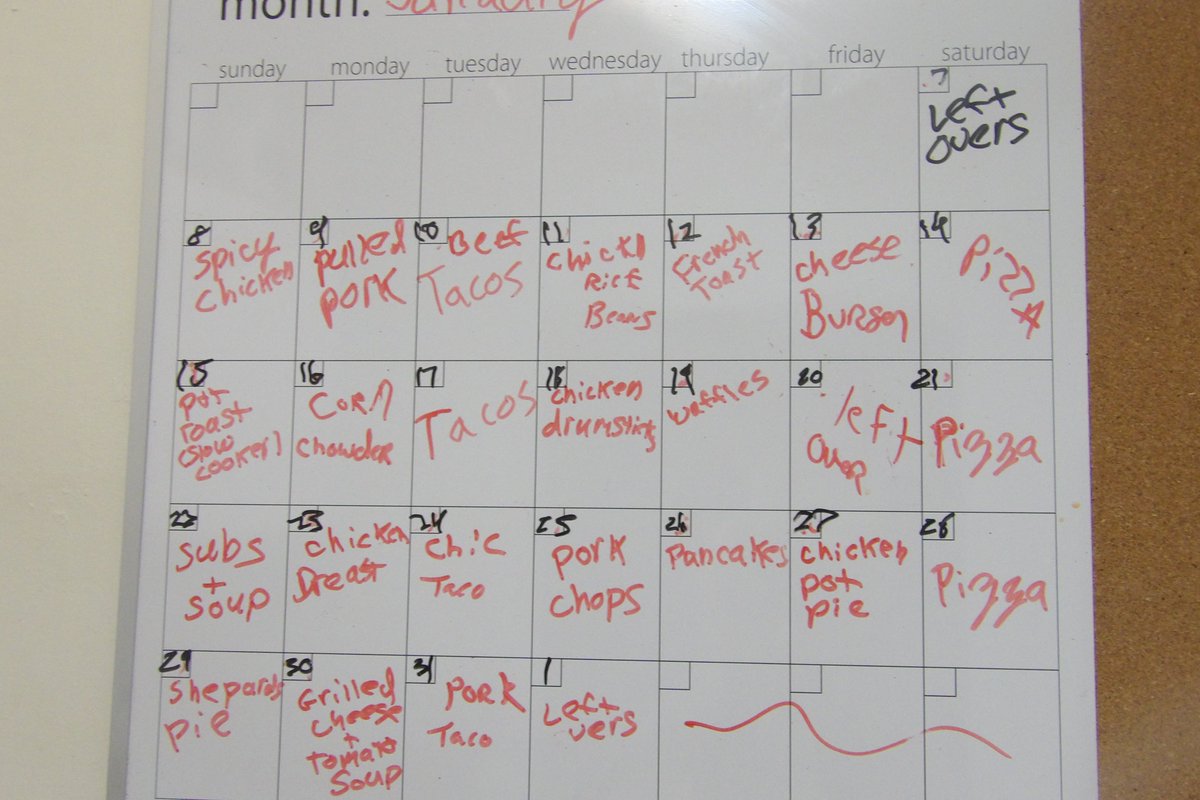 month: January
sunday monday tuesday wednesday thursday friday saturday
7
Left
overs
8
Spicy
chicken
9
pulled
pork
10
Beef
Tacos
11
Rice
Beans
12
French
Toast
13
cheese
14
Pizza
15
pot
roast
(slow
cooker)
16
Corn
chowder
17
Tacos
18
chicken
drumsticks
19
waffles
20
left
21
Pizza
22
subs
+
soup
23
chicken
Breast
24
chic
Taco
25
pork
chops
26
Pancakes
27
chicken
pot
pie
28
Pizza
29
shepards
pie
30
Grilled
cheese
+
tomato
soup
31
Pork
Taco
1
Left
overs